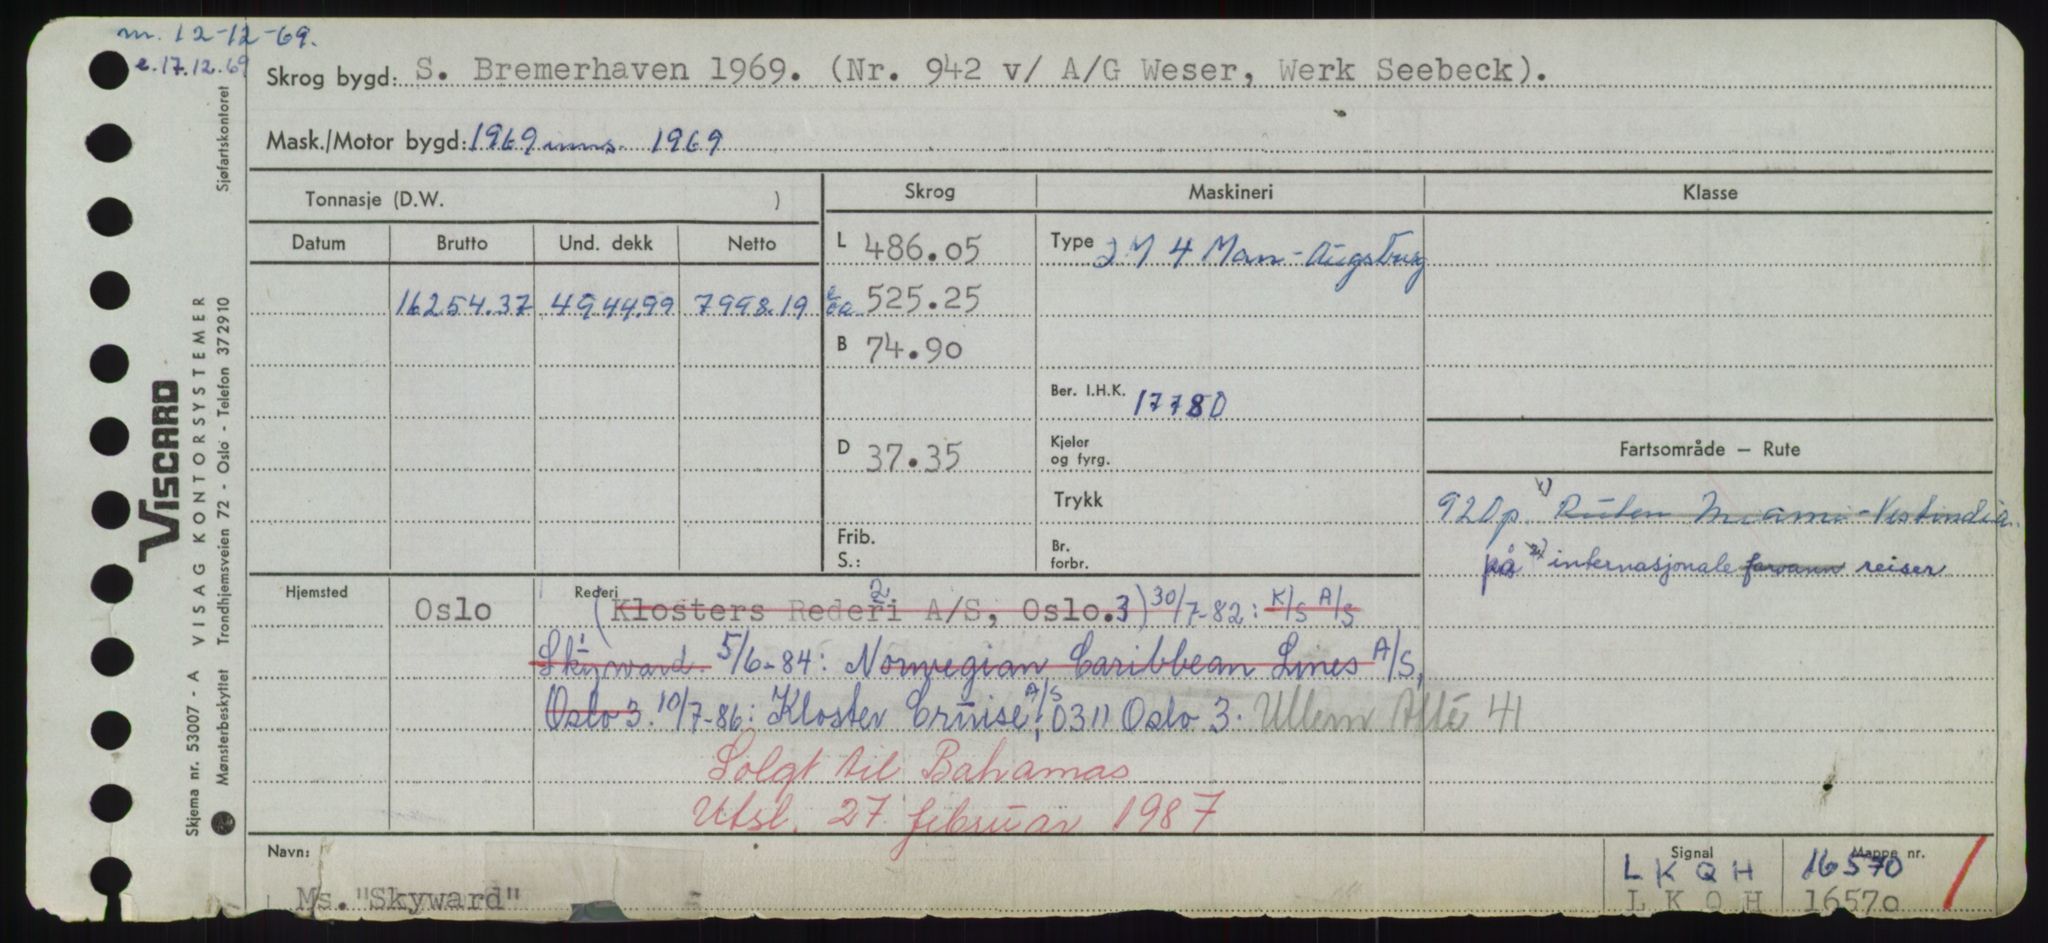 m. 12-12-69.
e. 17.12.69
Skrog bygd: S. Bremerhaven 1969. (Nr. 942 v/ A/G Weser, Werk Seebeck).
Mask./Motor bygd: 1969 inns. 1969
Tonnasje (D.W. )
Skrog
Maskineri
Klasse
Datum Brutto Und. dekk Netto
L 486.05
Type 2 M 4 Man-Augsburg
16254.37 4944.99 7998.19
ea 525.25
B 74.90
Ber. I.H.K. 17780
D 37.35
Kjeler
og fyrg.
Fartsområde – Rute
Trykk
920 p. 1) Ruten Miami-Vestindia.
Frib.
S.:
Br.
forbr.
på 2) internasjonale farvann reiser
Hjemsted Oslo
Rederi (Klosters Rederi A/S, Oslo.3) 30/7-82: K/S A/S
2
Skyward 5/6-84: Norwegian Caribbean Lines A/S,
Oslo 3. 10/7-86: Kloster Cruise A/S, 0311 Oslo 3. Ullern Allé 41
Solgt til Bahamas
Utsl. 27 februar 1987
Navn:
Ms. "Skyward"
Signal
L K Q H
L K Q H
Mappe nr.
16570
16570
Sjøfartskontoret
VISCARD
VISAG KONTORSYSTEMER
Skjema nr. 53007 - A
Mønsterbeskyttet Trondhjemsveien 72 - Oslo - Telefon 372910